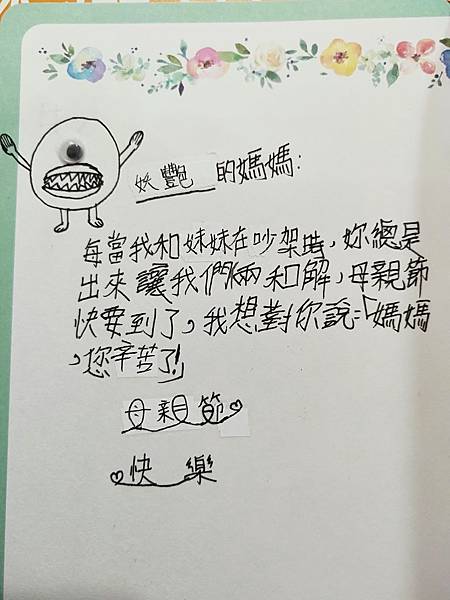 妖艷的媽媽：
每當我和妹妹在吵架時，妳總是
出來讓我們倆和解，母親節
快要到了，我想對你說：「媽媽
，您辛苦了！」
母親節
快樂